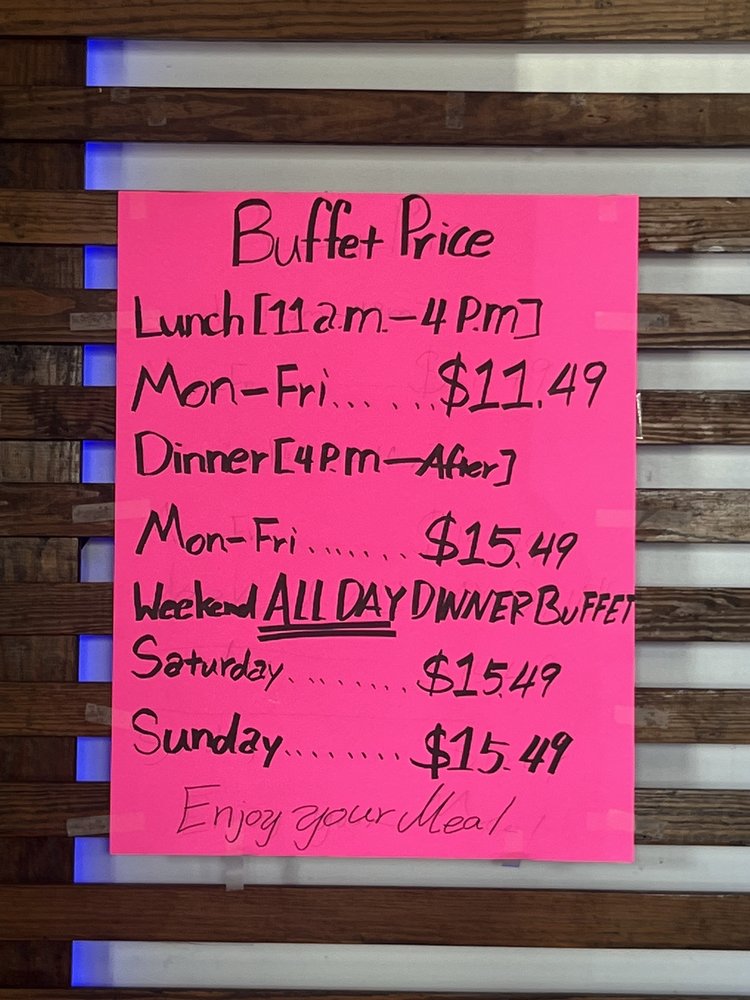 Buffet Price
Lunch [11a.m.-4P.m]
Mon-Fri........$11.49
Dinner [4P.m-After]
Mon-Fri....... $15.49
Weekend ALL DAY DINNER BUFFET
Saturday......... $15.49
Sunday......... $15.49
Enjoy your Meal